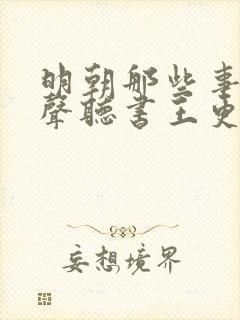 明朝那些事
聲聽書王更
妄想境界